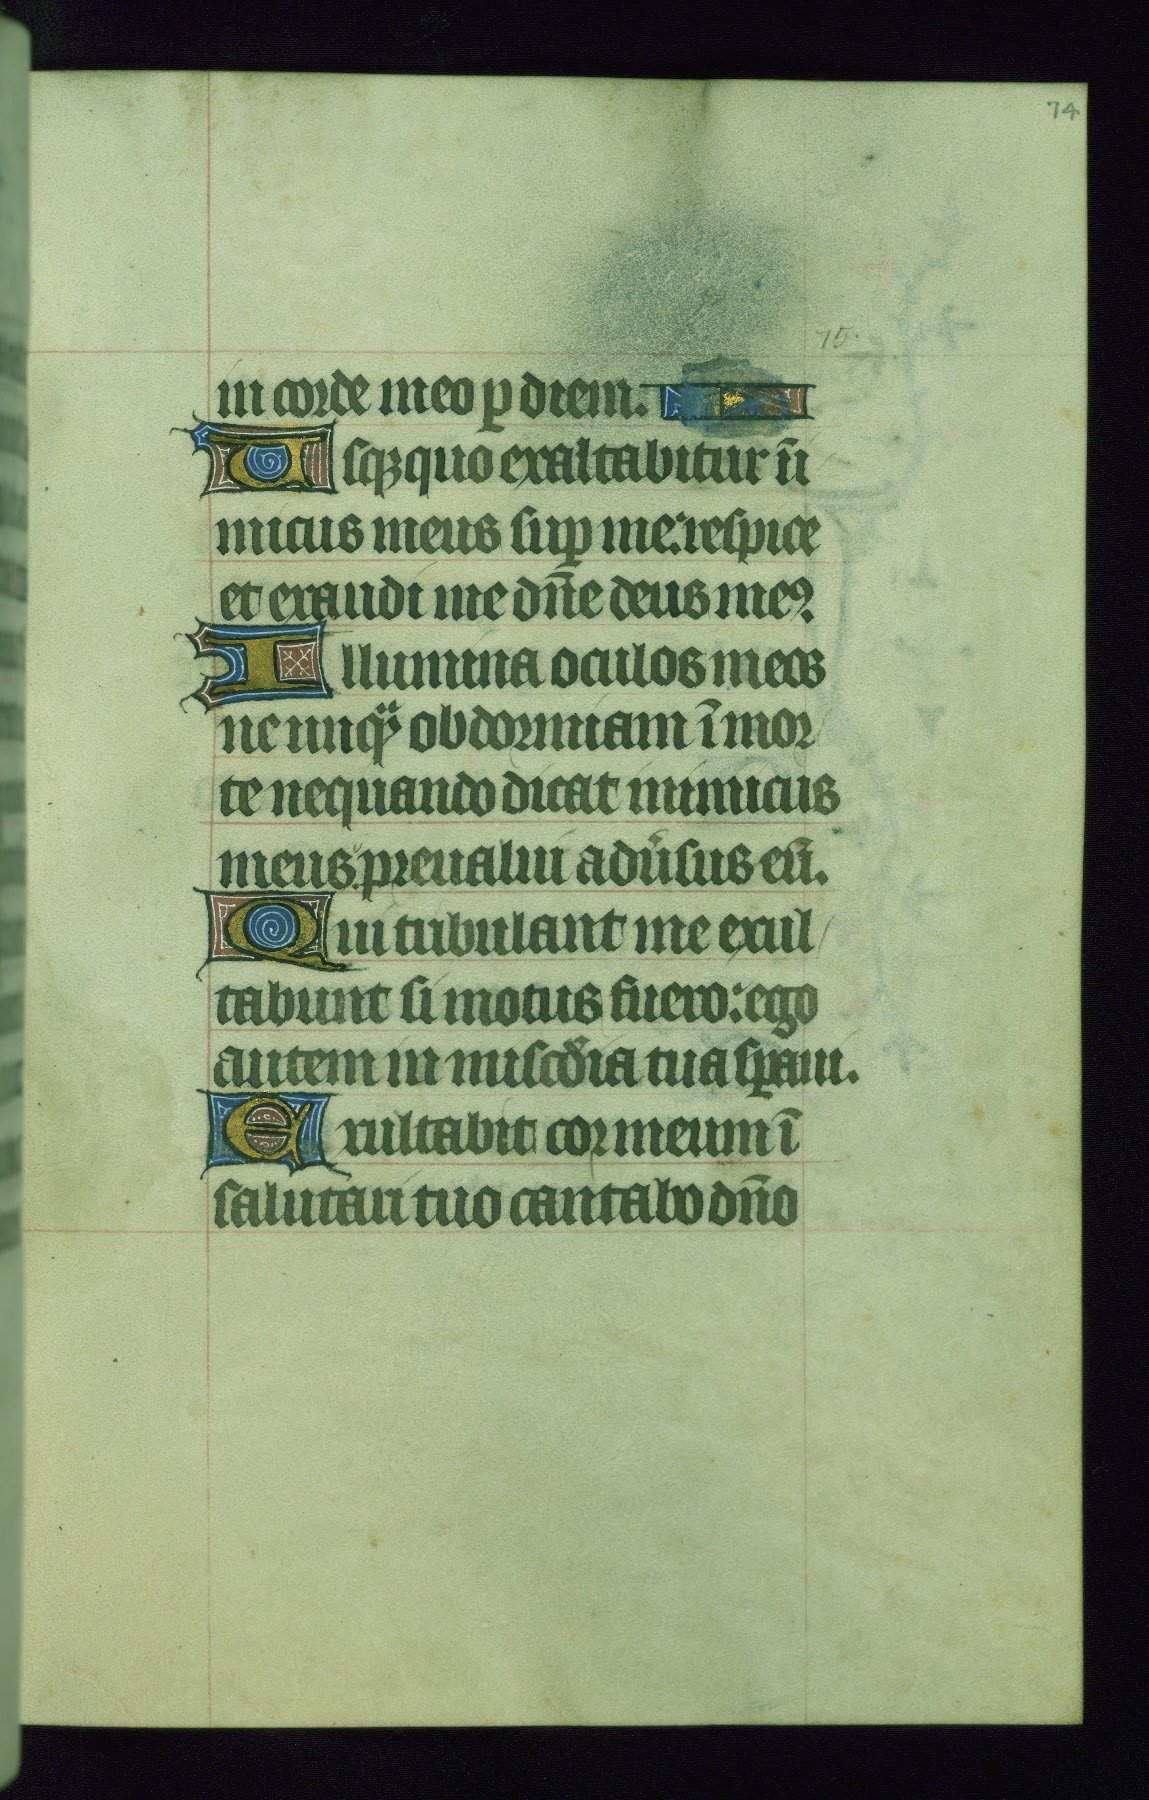 74
75.
in corde meo ꝑ diem.
Usqꝫquo exaltabitur ĩi
micus meus suꝑ me: respice
et exaudi me dñe deus meꝰ.
Illumina oculos meos
ne unqᷓ obdormiam ĩ mor
te nequando dicat inimicus
meus: preualui aduũsus eũ.
Qui tribulant me exul
tabunt si motus fuero: ego
autem in miscd̃ia tua sꝑaui.
Exultabit cor meum ĩ
salutari tuo cantabo dño